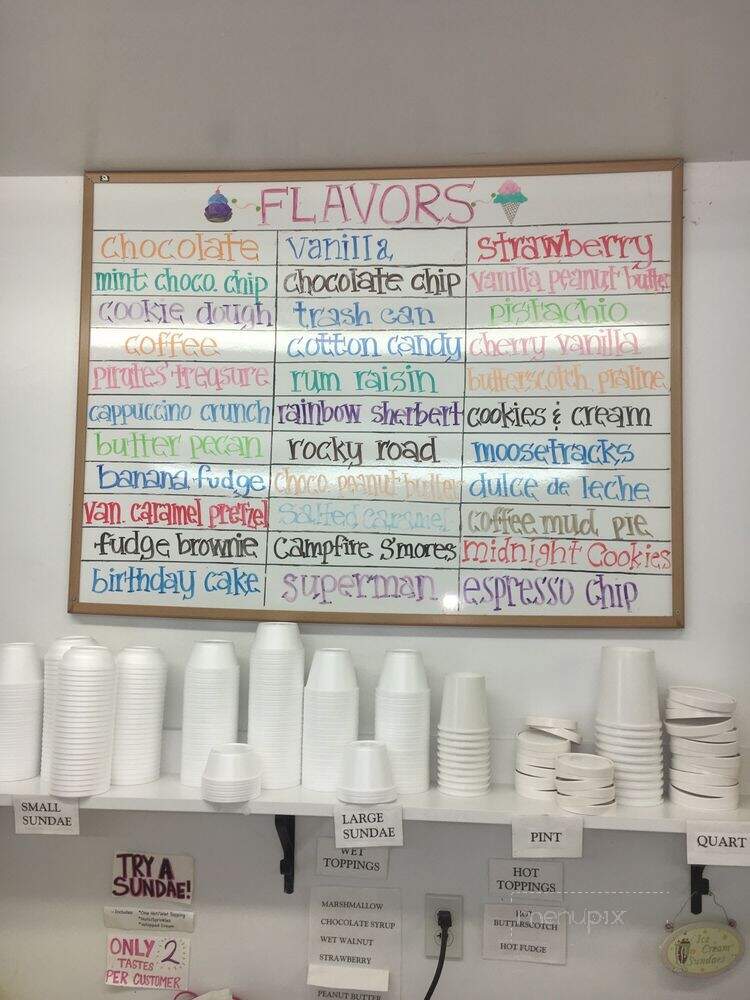 FLAVORS
chocolate vanilla strawberry
mint choco. chip chocolate chip vanilla peanut butter
cookie dough trash can pistachio
coffee cotton candy cherry vanilla
pirates' treasure rum raisin butterscotch praline
cappuccino crunch rainbow sherbert cookies & cream
butter pecan rocky road moosetracks
banana fudge choco. peanut butter dulce de leche
van. caramel pretzel salted caramel coffee mud pie
fudge brownie campfire s'mores midnight cookies
birthday cake superman espresso chip
SMALL
SUNDAE
LARGE
SUNDAE
PINT
QUART
TRY A
SUNDAE!
ONLY 2
TASTES
PER CUSTOMER
WET
TOPPINGS
MARSHMALLOW
CHOCOLATE SYRUP
WET WALNUT
STRAWBERRY
PEANUT BUTTER
HOT
TOPPINGS
HOT
BUTTERSCOTCH
HOT FUDGE
Ice
Cream
Sundaes
menupix